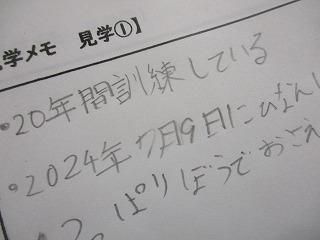 学メモ 見学①】
・20年間訓練している
・2024年7月9日にひなん
ぱりぼうでおこえ